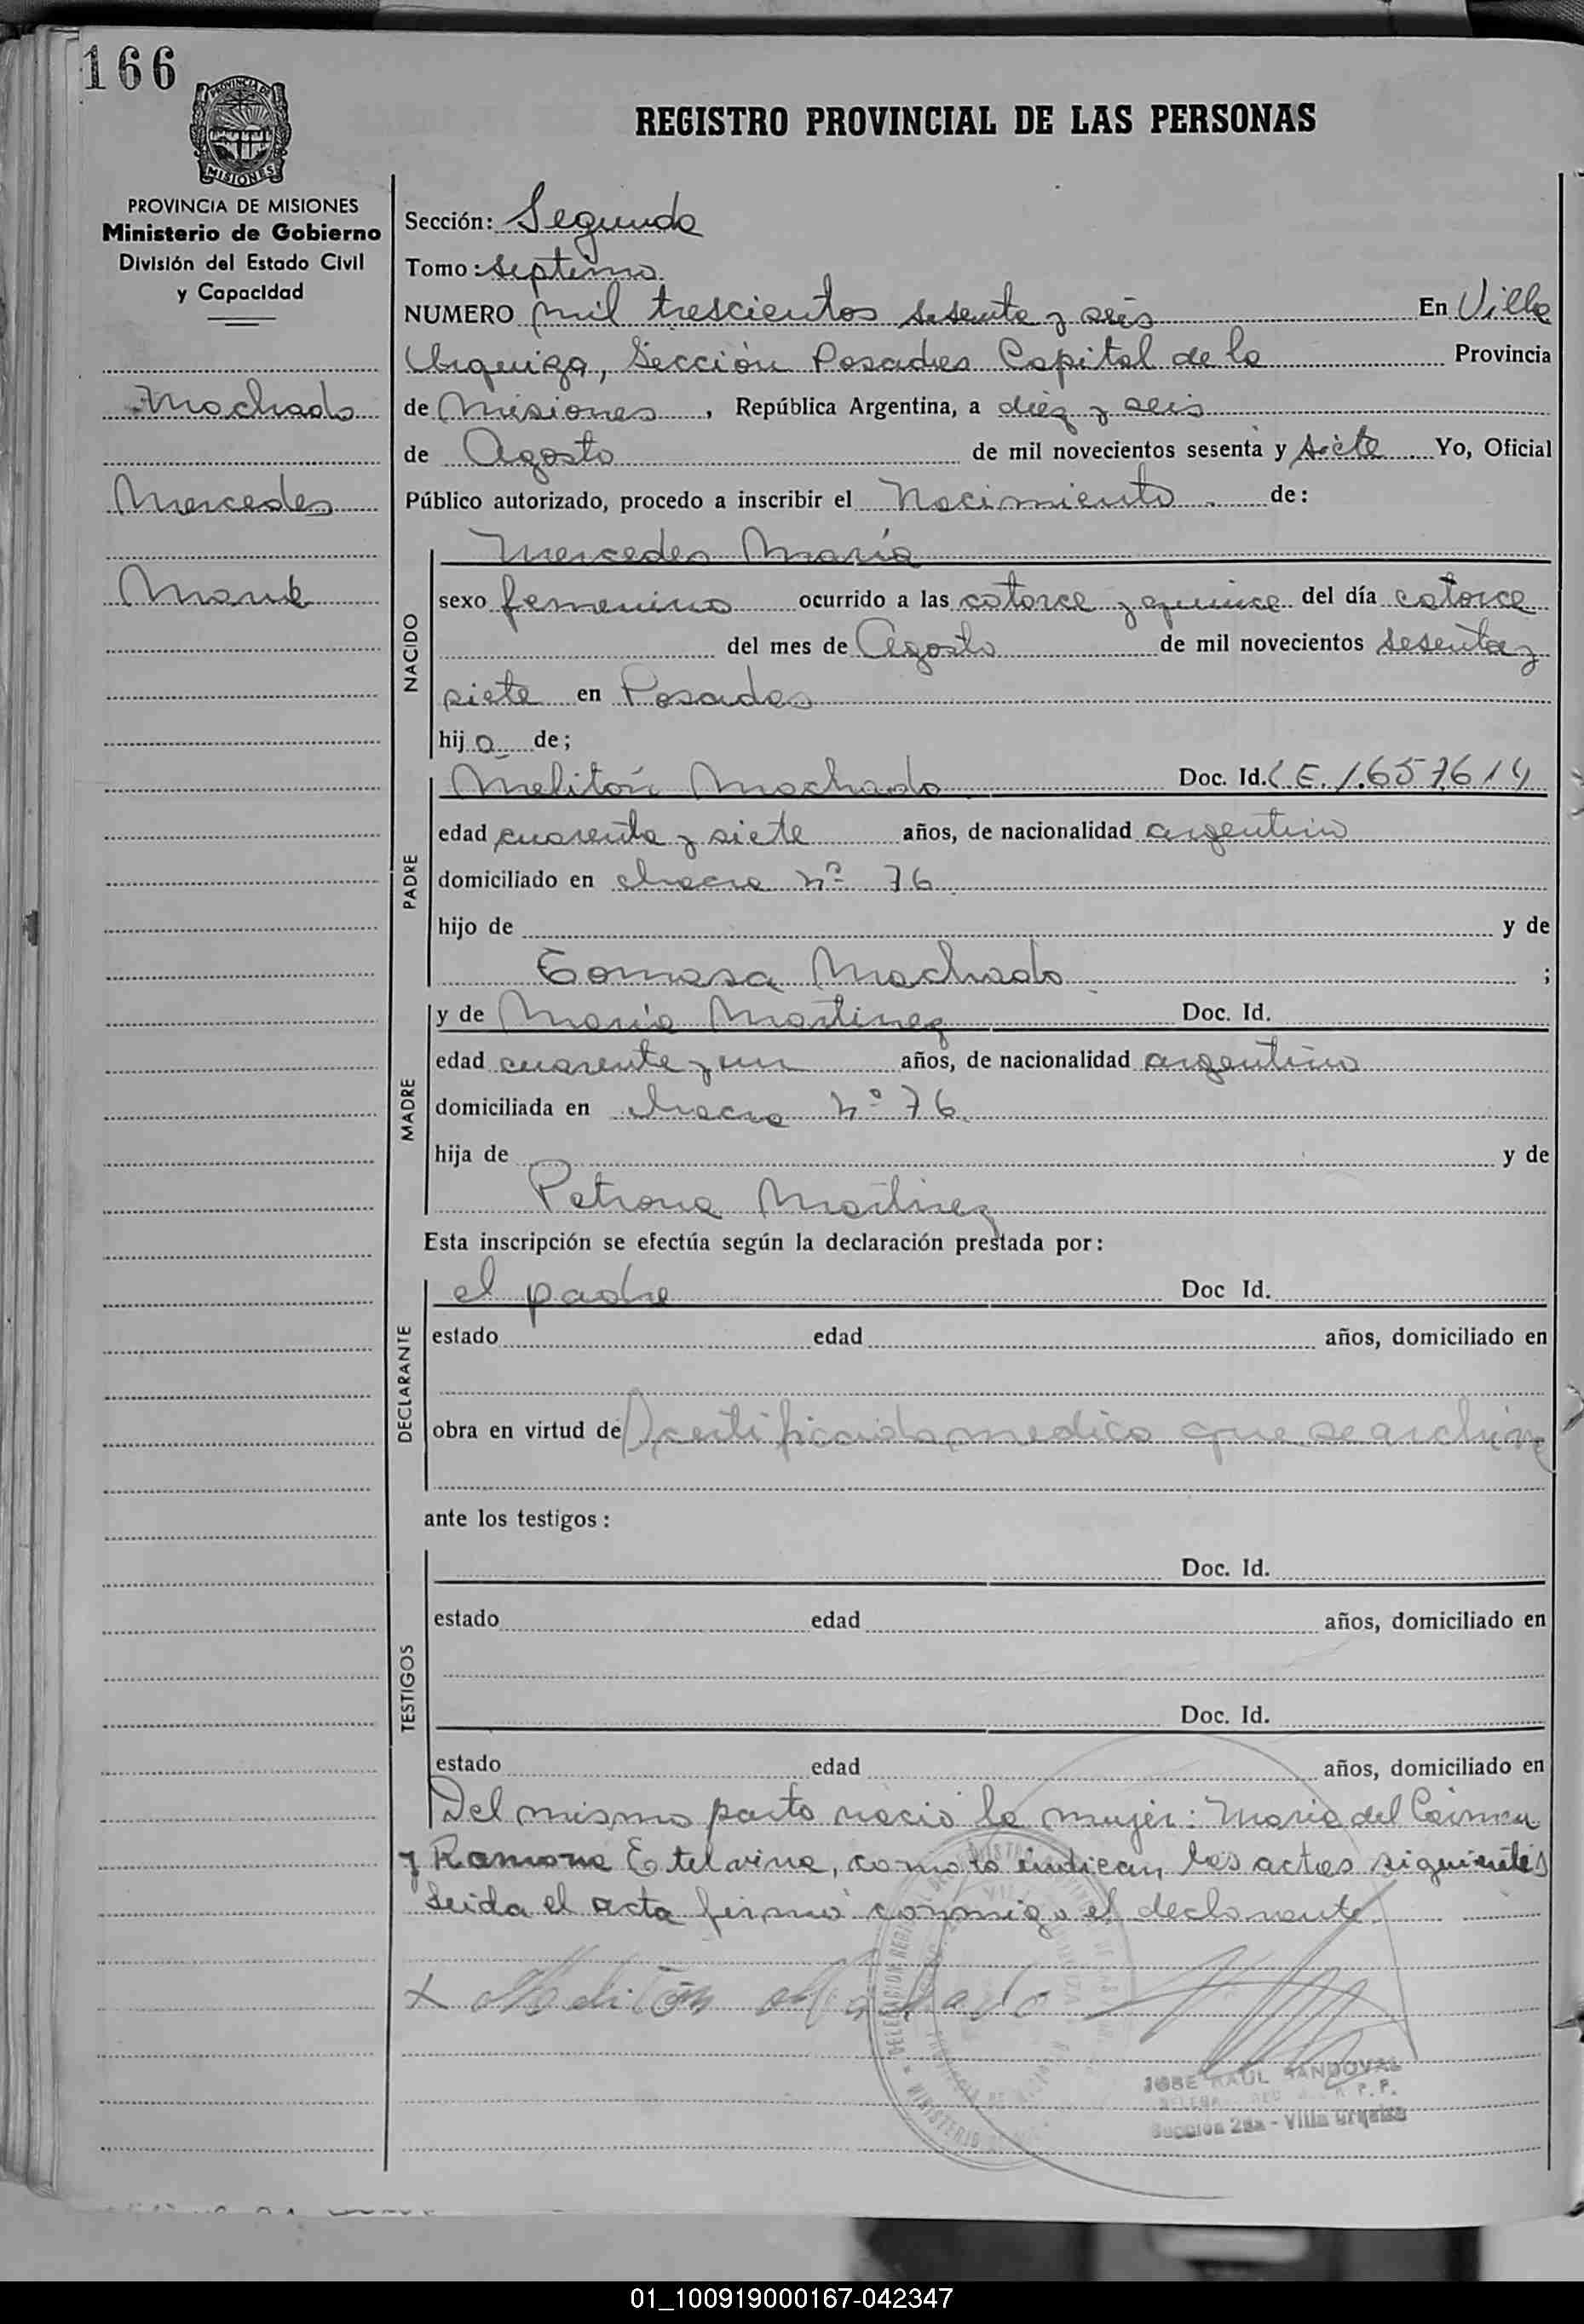 166
PROVINCIA DE
MISIONES
PROVINCIA DE MISIONES
Ministerio de Gobierno
División del Estado Civil
y Capacidad
Machado
Mercedes
María
REGISTRO PROVINCIAL DE LAS PERSONAS
Sección: Segunda
Tomo: septimo
NUMERO mil trescientos sesenta y seis En Villa
Urquiza, Sección Posadas Capital de la Provincia
de Misiones, República Argentina, a diez y seis
de Agosto de mil novecientos sesenta y siete. Yo, Oficial
Público autorizado, procedo a inscribir el Nacimiento de:
Mercedes María
NACIDO
sexo femenino ocurrido a las catorce y quince del día catorce
del mes de Agosto de mil novecientos sesenta y
siete en Posadas
hija de;
Melitón Machado Doc. Id. L.E. 1.657.614
PADRE
edad cuarenta y siete años, de nacionalidad argentino
domiciliado en chacra nº 76
hijo de y de
Tomasa Machado ;
y de María Martinez Doc. Id.
MADRE
edad cuarenta y un años, de nacionalidad argentina
domiciliada en chacra nº 76
hija de y de
Petrona Martinez
Esta inscripción se efectúa según la declaración prestada por:
el padre Doc Id.
DECLARANTE
estado edad años, domiciliado en
obra en virtud de certificado medico que se archiva
ante los testigos:
Doc. Id.
TESTIGOS
estado edad años, domiciliado en
Doc. Id.
estado edad años, domiciliado en
Del mismo parto nació la mujer: María del Carmen
y Ramona Etelvina, como lo indican las actas siguientes
Leida el acta firmó conmigo el declarante
x Melitón Machado
JOSE RAUL SANDOVAL
Sección 2da - Villa Urquiza
01_100919000167-042347